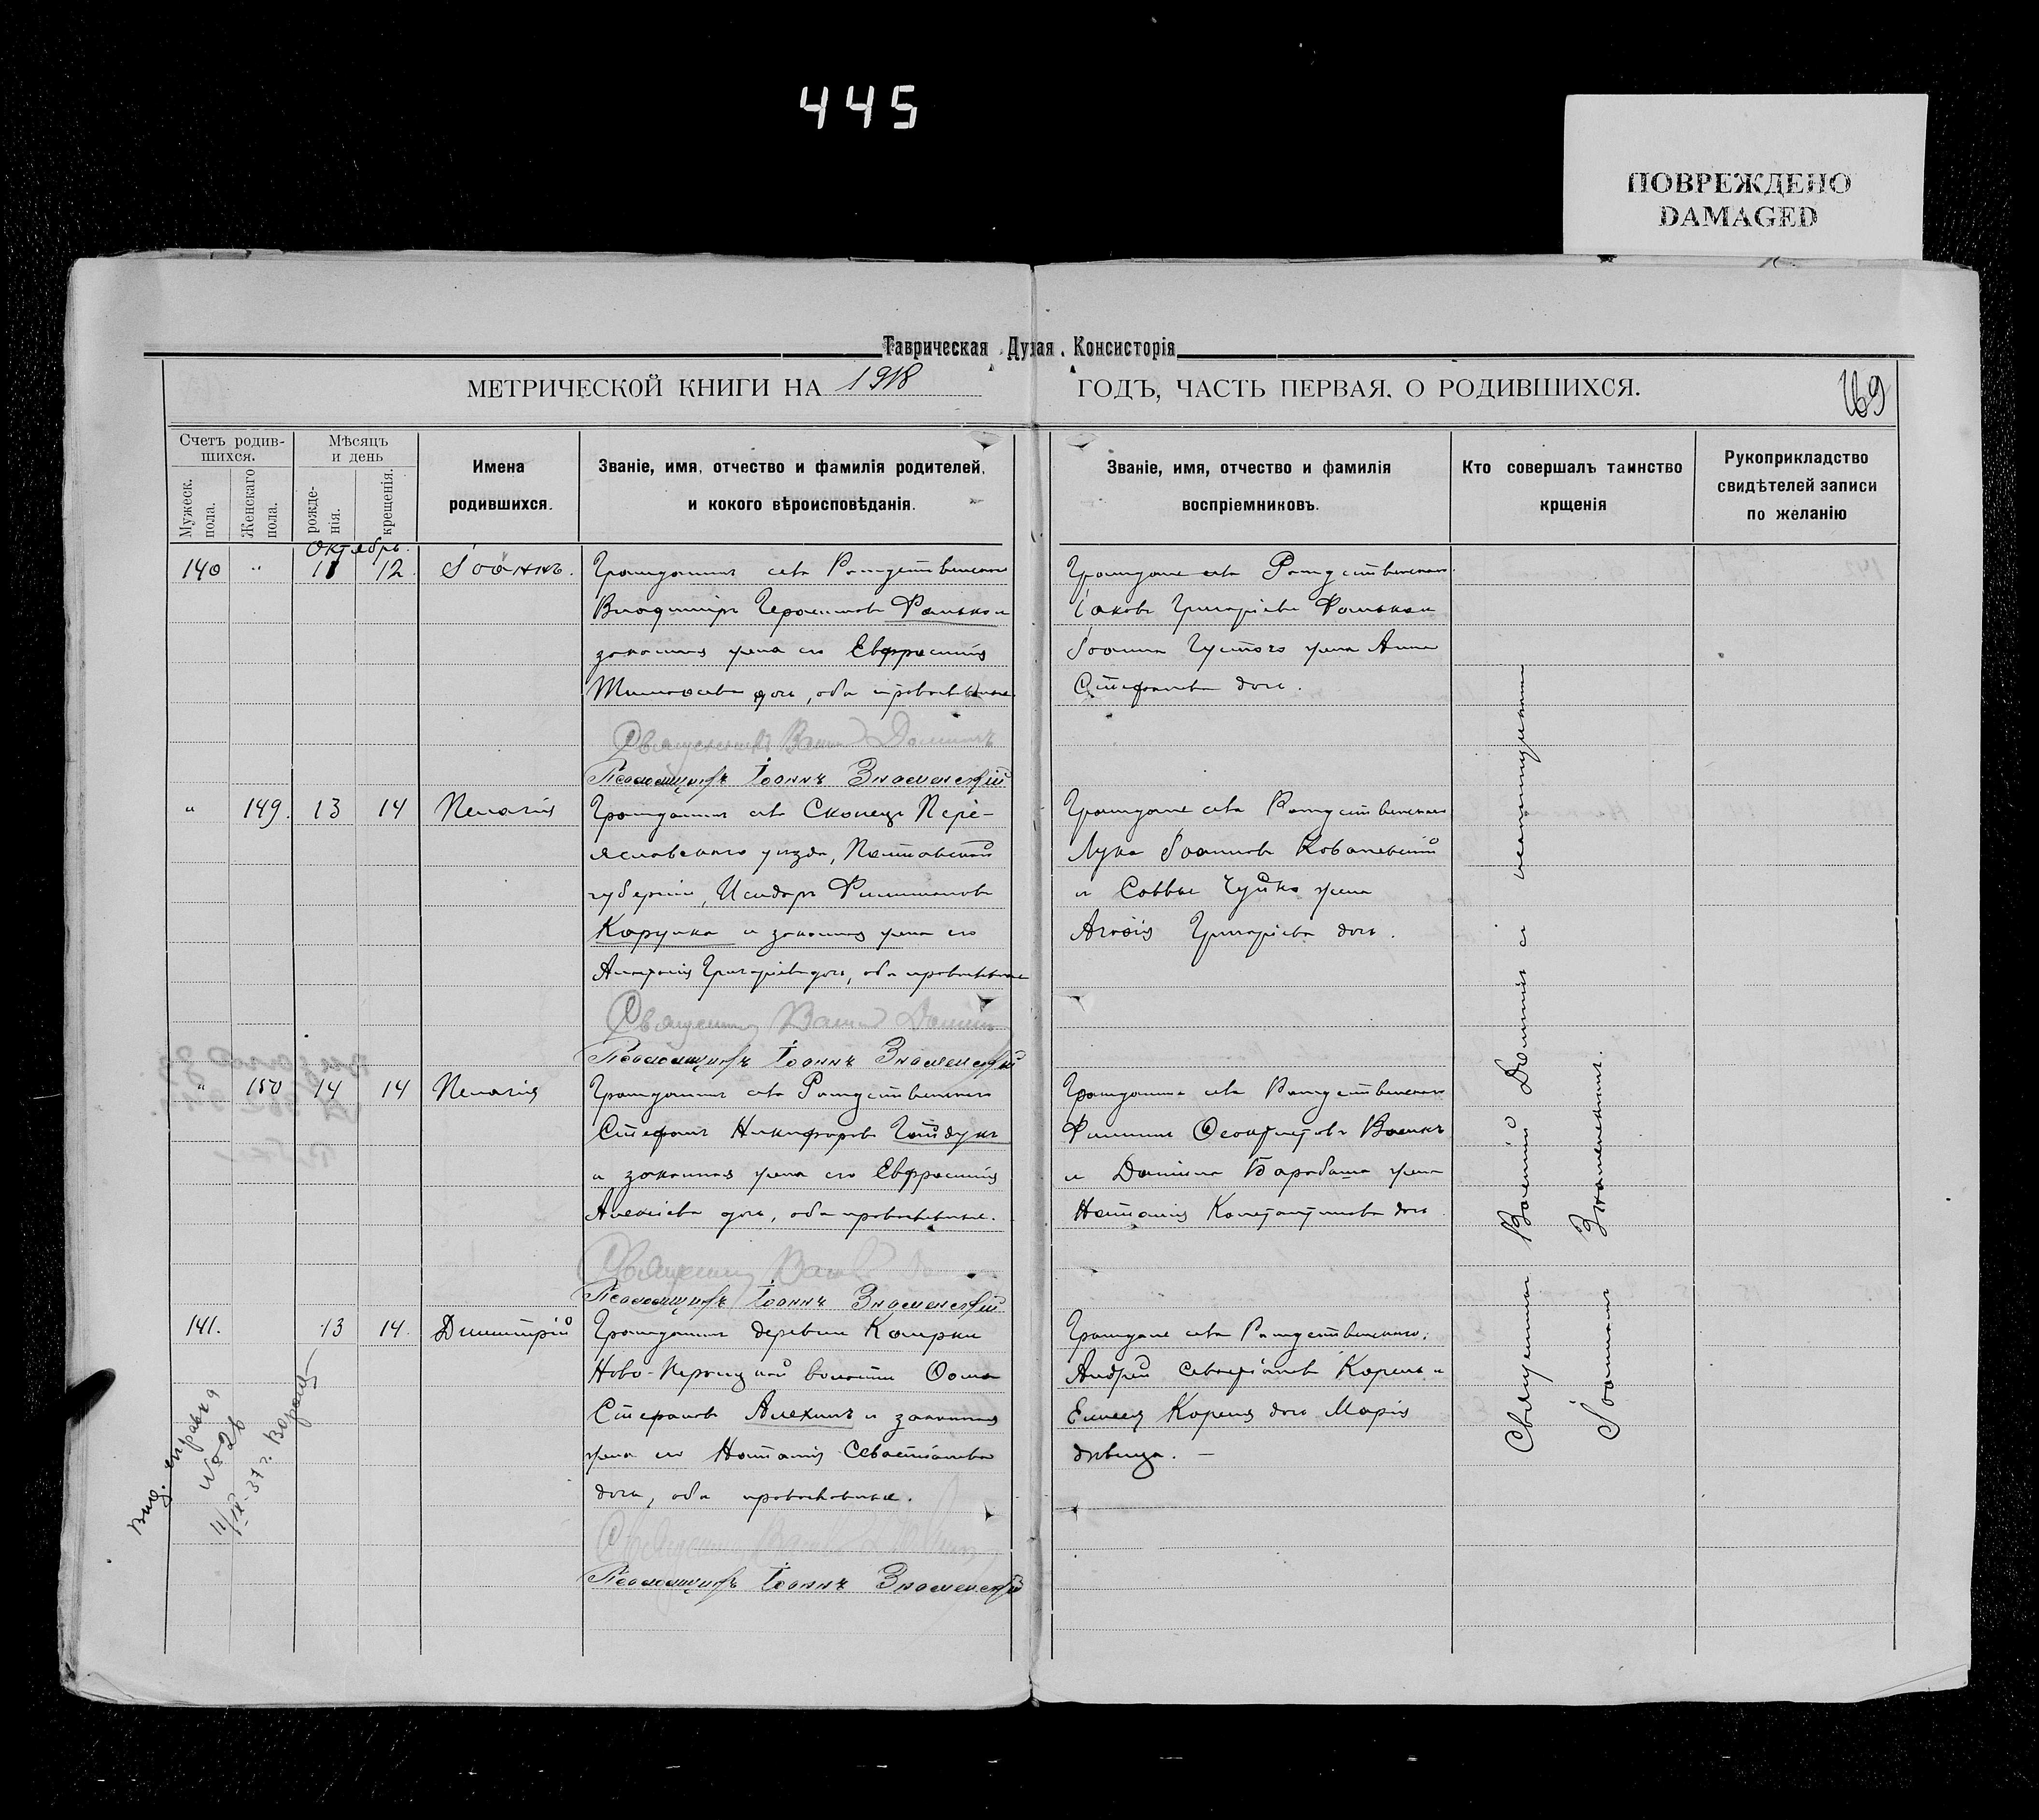 445
ПОВРЕЖДЕНО
DAMAGED
Таврическая Духая Консисторія
МЕТРИЧЕСКОЙ КНИГИ НА 1918 ГОДЪ, ЧАСТЬ ПЕРВАЯ, О РОДИВШИХСЯ.
169
Счетъ родив-
шихся.
Мужеск. пола.
Женскаго пола.
Мѣсяцъ
и день
рожде-
нія.
крещенія.
Имена
родившихся.
Званіе, имя, отчество и фамилія родителей,
и кокого вѣроисповѣданія.
Званіе, имя, отчество и фамилія
воспріемниковъ.
Кто совершалъ таинство
крщенія
Рукоприкладство
свидѣтелей записи
по желанію
Октябрь.
140 " 11 12 Іоаннъ.
Гражданинъ села Рождественскаго
Владиміръ Герасимовъ Фалько и
законная жена его Евфросинія
Тимофеева дочь, оба православные
Священникъ Василій Доминъ
Псаломщикъ Іоаннъ Знаменскій
Граждане села Рождественскаго
Іаковъ Григоріевъ Фалько и
Іоанна Густого жена Анна
Стефанова дочь.
" 149. 13 14 Пелагія
Гражданинъ села Скопецъ Пере-
яславскаго уѣзда, Полтавской
губерніи, Исидоръ Филимоновъ
и законная жена его
Григоріева дочь, оба православные
Священникъ Василій Доминъ
Псаломщикъ Іоаннъ Знаменскій
Граждане села Рождественскаго
Лука Іоанновъ Ковалевскій
и Саввы Чуйко жена
Агафія Григоріева дочь.
" 150 14 14 Пелагія
Гражданинъ села Рождественскаго
Стефанъ Никифоровъ Гайдукъ
и законная жена его Евфросинія
Алексіева дочь, оба православные.
Священникъ Василій
Псаломщикъ Іоаннъ Знаменскій
Граждане села Рождественскаго
Филиппъ Феоктистовъ
и Даніила Барабаша жена
Наталія Константинова дочь
141. 13 14. Димитрій
Гражданинъ деревни
Ново- волости Фома
Стефановъ Алехинъ и законная
жена его Наталія Севастіанова
дочь, оба православные.
Священникъ Василій
Псаломщикъ Іоаннъ Знаменскій
Граждане села Рождественскаго,
Андрей Севастіановъ Корень и
Елисея Кореня дочь Марія
дѣвица. –
Священникъ Василій Доминъ и псаломщикъ
Іоаннъ Знаменскій.
Выд. справка
№ 826
11/IX-37 г.